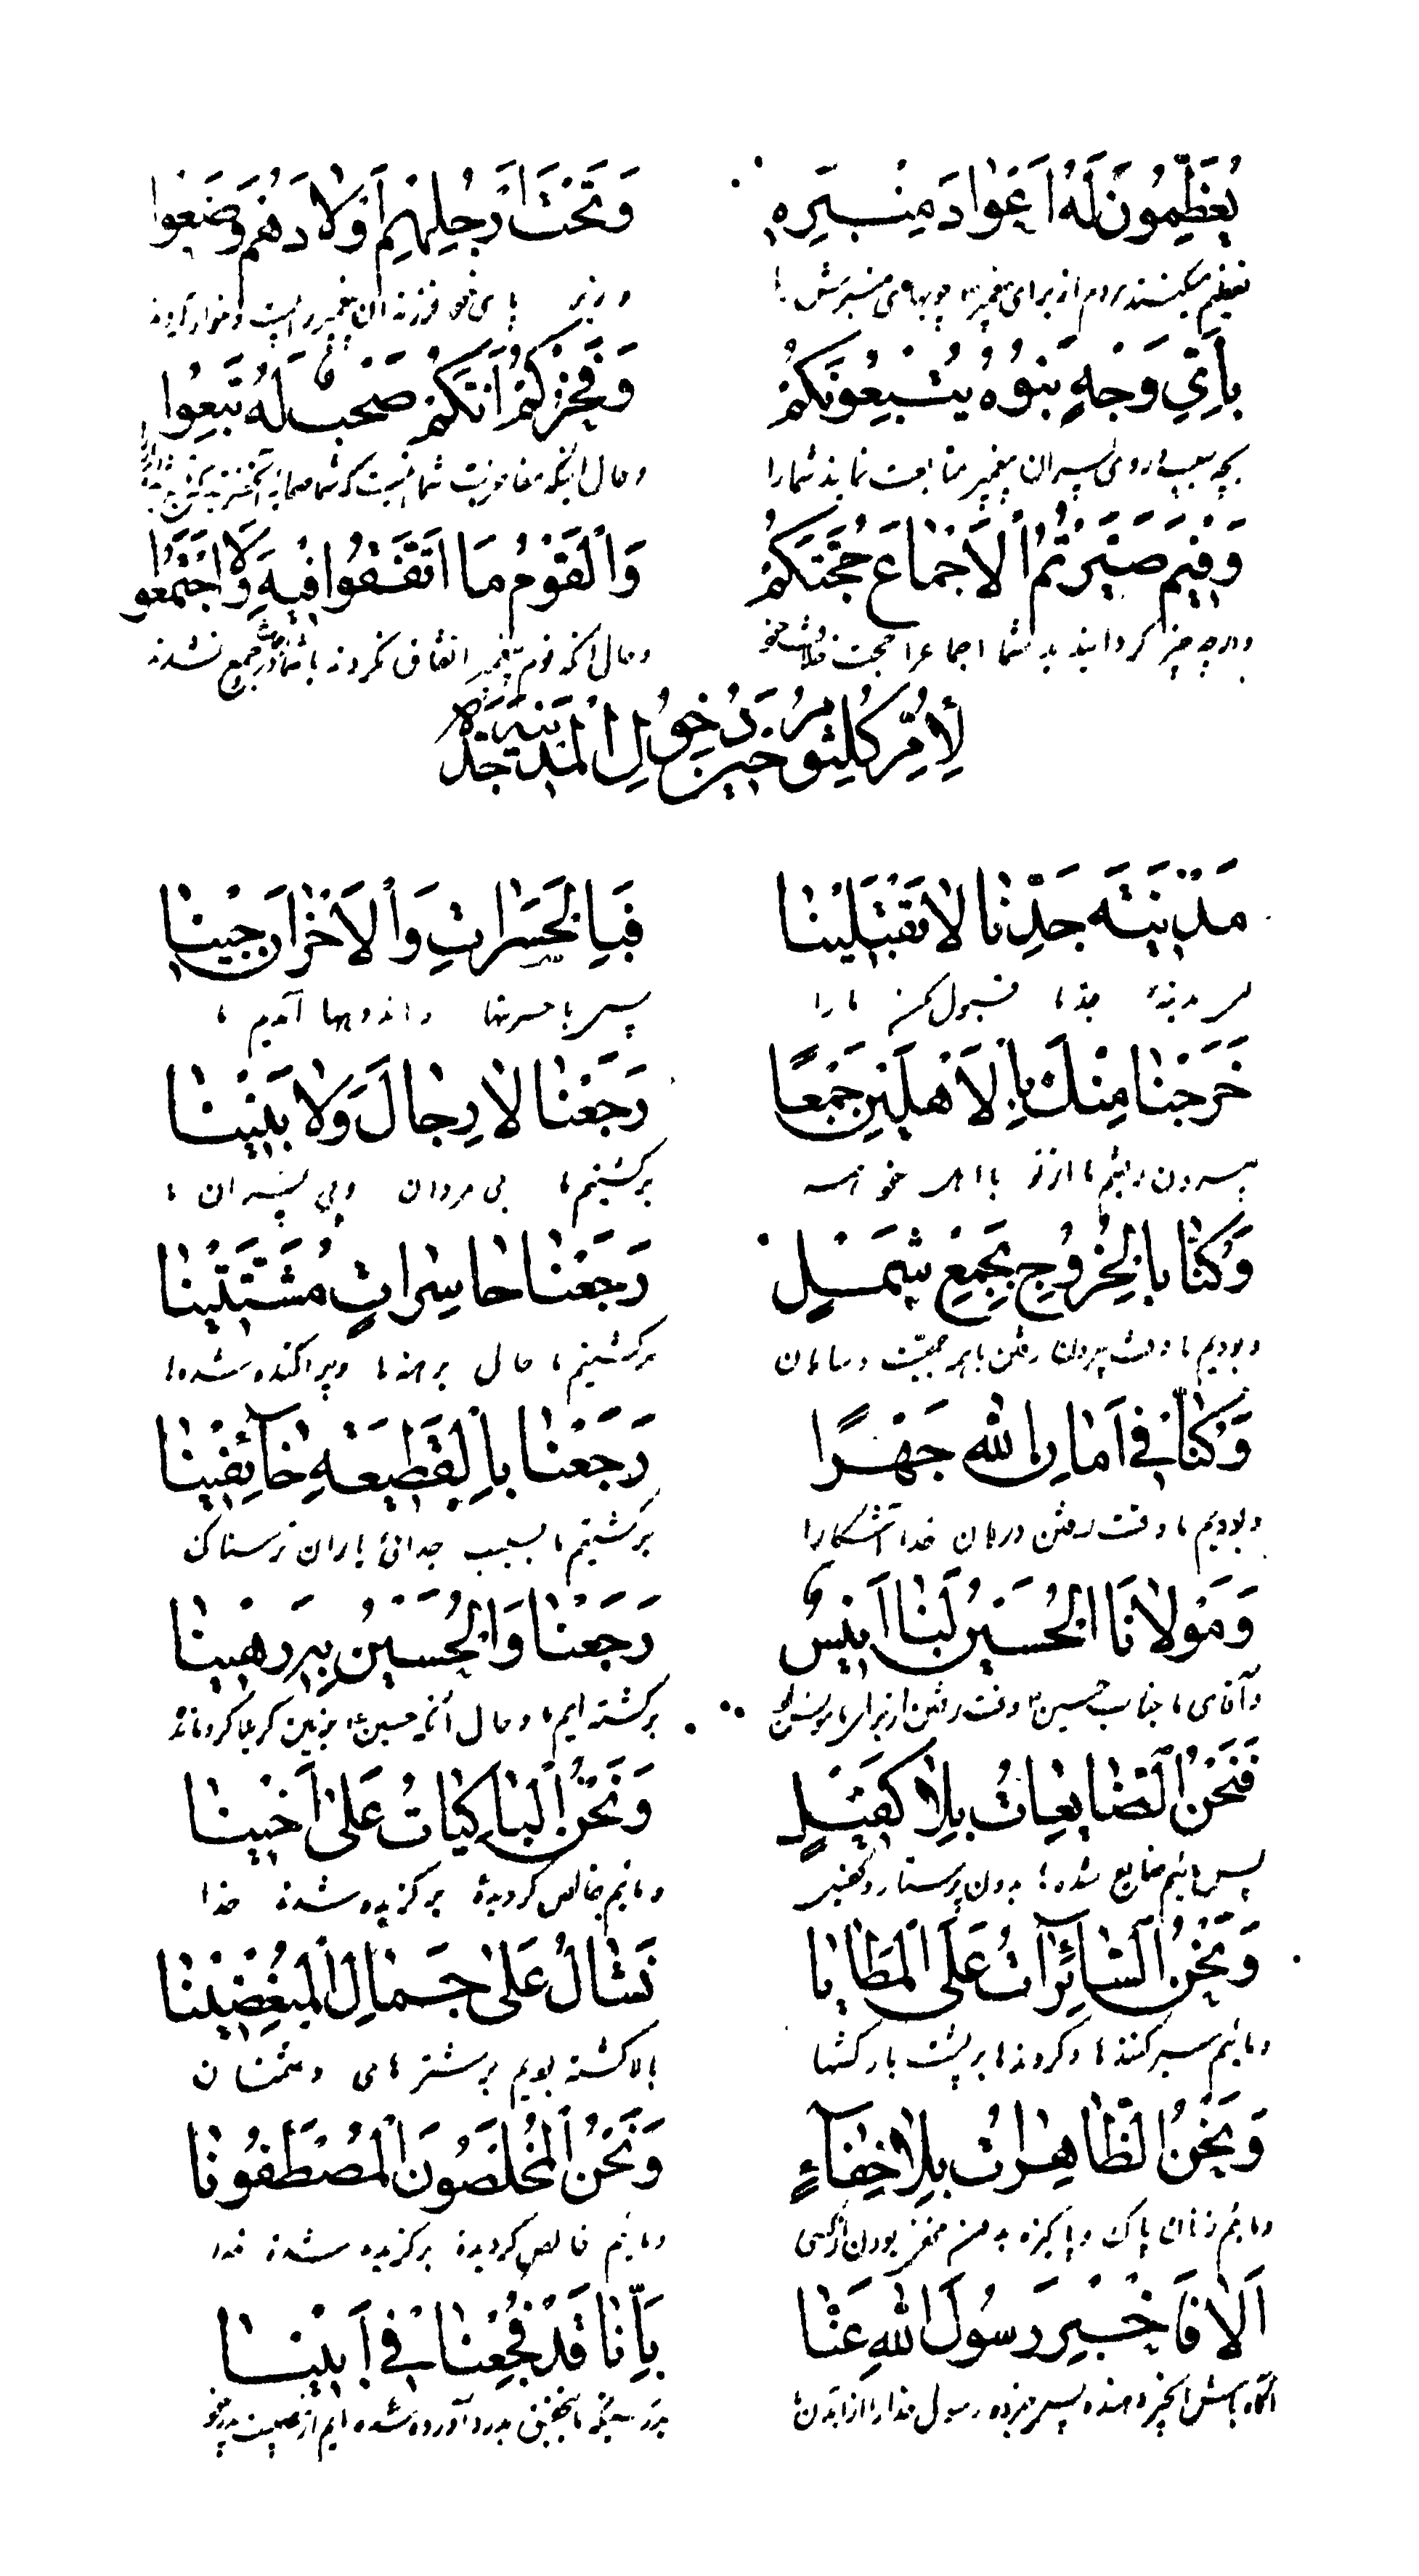 يُعَظِّمُونَ لَهُ اَعْوادَ مِنْبَرِهِ وَتَحْتَ اَرْجُلِهِمْ اَوْلادَهُمْ وَضَعُوا
تعظیم میکنند مردم از برای پیغمبر چوبهای منبرش را و زیر پای خود فرزندان پیغمبر را
بِاَيِّ وَجْهٍ بَنُوهُ يُتْبِعُونَكُمْ وَفَخْرُكُمْ اَنَّكُمْ صَحْبٌ لَهُ تَبَعُوا
بچه سبب و روی پسران پیغمبر متابعت نمایند شما را و حال اینکه مفاخرت شما اینست که شما صحابه
وَفِيمَ صَيَّرْتُمُ الْاَجْمَاعَ حُجَّتَكُمْ وَالْقَوْمُ مَا اتَّفَقُوا فِيهِ وَلَا اجْتَمَعُوا
و در چه چیز گردانیدید شما اجماع را حجت خلافت خود و حال آنکه قوم پیغمبر اتفاق نکردند با شما جمع نشدند
لِاُمِّ كُلْثُومَ حِينَ دُخُولِ الْمَدِينَةِ جَدِّهَا
مَدِينَةَ جَدِّنا لا تَقْبَلِينا فَبِالْحَسَراتِ وَالْاَحْزانِ جِينا
ای مدینهٔ جد ما قبول مکن ما را پس با حسرتها و اندوهها آمدیم ما
خَرَجْنا مِنْكِ بِالْاَهْلِينَ جَمْعًا رَجَعْنا لا رِجالَ وَلا بَنِينا
بیرون رفتیم ما از تو با اهل خود همه برگشتیم ما بی مردان و بی پسران ما
وَكُنّا بِالْخُرُوجِ بِجَمْعِ شَمْلٍ رَجَعْنا حاسِراتٍ مُشَتَّتِينا
و بودیم ما وقت بیرون رفتن با هم جمعیت و سامان برگشتیم ما حال برهنه ها و پراکنده شده ها
وَكُنّا في اَمانِ اللهِ جَهْرًا رَجَعْنا بِالْقَطِيعَةِ خآئِفِينا
و بودیم ما وقت رفتن در امان خدا آشکارا برگشتیم ما بسبب جدائی یاران ترسناک
وَمَوْلانَا الْحُسَيْنُ لَنا اَنِيسٌ رَجَعْنا وَالْحُسَيْنُ بِهِ رَهِينا
و آقای ما جناب حسین وقت رفتن از برای ما مونس بود برگشته ایم ما و حال آنکه حسین بزمین کربلا گرو مانده
فَنَحْنُ الضّايِعاتُ بِلا كَفِيلٍ وَنَحْنُ الْباكِياتُ عَلىٰ اَخِينا
پس مائیم ضایع شده ها بدون پرستار و کفیل و مائیم خالص گردیدهٔ برگزیده شدهٔ خدا
وَنَحْنُ السّائِراتُ عَلَى الْمَطايا نُشالُ عَلىٰ جِمالِ الْمُبْغِضِينا
و مائیم سیر کننده ها و گردنده ها بر پشت بارکشها بالا کشته بویم بر شترهای دشمنان
وَنَحْنُ الطّاهِراتُ بِلا خِفآءٍ وَنَحْنُ الْمُخْلَصُونَ الْمُصْطَفُونا
و مائیم زنان پاک و پاکیزه بدون مخفی بودن از کسی و مائیم خالص گردیدهٔ برگزیده شدهٔ خدا
اَلا فَاخْبِرْ رَسُولَ اللهِ عَنّا بِاَنّا قَدْ فُجِعْنا في اَبِينا
آگاه باش ای خبر دهنده پس خبر ده رسول خدا را از ما بدرستیکه ما بتحقیق بدرد آورده شده ایم از مصیبت پدر خود